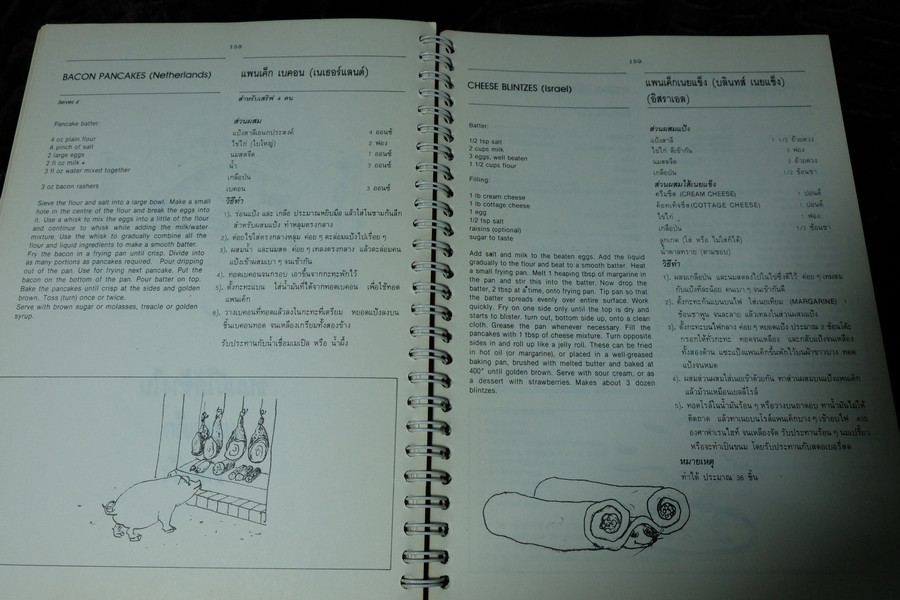 159
BACON PANCAKES (Netherlands)
แพนเค็ก เบคอน (เนเธอร์แลนด์)
Serves 4
สำหรับเสริฟ 4 คน
Pancake batter:
4 oz plain flour
A pinch of salt
2 large eggs
2 fl oz milk +
3 fl oz water mixed together
3 oz bacon rashers
Sieve the flour and salt into a large bowl. Make a small
hole in the centre of the flour and break the eggs into
it. Use a whisk to mix the eggs into a little of the flour
and continue to whisk while adding the milk/water
mixture. Use the whisk to gradually combine all the
flour and liquid ingredients to make a smooth batter.
Fry the bacon in a frying pan until crisp. Divide into
as many portions as pancakes required. Pour dripping
out of the pan. Use for frying next pancake. Put the
bacon on the bottom of the pan. Pour batter on top.
Bake the pancakes until crisp at the sides and golden
brown. Toss (turn) once or twice.
Serve with brown sugar or molasses, treacle or golden
syrup.
ส่วนผสม
แป้งสาลีเอนกประสงค์ 4 ออนซ์
ไข่ไก่ (ใบใหญ่) 2 ฟอง
นมสดจืด ออนซ์
น้ำ 3 ออนซ์
เกลือป่น
เบคอน 3 ออนซ์
วิธีทำ
1). ร่อนแป้ง และ เกลือ ประมาณหยิบมือ แล้วใส่ในชามก้นลึก
สำหรับผสมแป้ง ทำหลุมตรงกลาง
2). ต่อยไข่ใส่ตรงกลางหลุม ค่อย ๆ ตะล่อมแป้งไปเรื่อย ๆ
3). ผสมน้ำ และนมสด ค่อย ๆ เทลงตรงกลาง แล้วตะล่อมคน
แป้งเข้าผสมเบา ๆ จนเข้ากัน
4). ทอดเบคอนจนกรอบ เอาขึ้นจากกะทะพักไว้
5). ตั้งกะทะแบน ใส่น้ำมันที่ได้จากทอดเบคอน เพื่อใช้ทอด
แพนเค็ก
6). วางเบคอนที่ทอดแล้วลงในกะทะที่เตรียม หยอดแป้งลงบน
ชิ้นเบคอน ทอด จนเหลืองเกรียมทั้งสองข้าง
รับประทานกับน้ำเชื่อมเมเปิล หรือ น้ำผึ้ง
159
CHEESE BLINTZES (Israel)
แพนเค็กเนยแข็ง (บลินทส์ เนยแข็ง)
(อิสราเอล)
Batter:
1/2 tsp salt
2 cups milk
3 eggs, well beaten
1 1/2 cups flour
Filling:
1 lb cream cheese
1 lb cottage cheese
1 egg
1/2 tsp salt
raisins (optional)
sugar to taste
Add salt and milk to the beaten eggs. Add the liquid
gradually to the flour and beat to a smooth batter. Heat
a small frying pan. Melt 1 heaping tbsp of margarine in
the pan and stir this into the batter. Now drop the
batter, 2 tbsp at a time, onto frying pan. Tip pan so that
the batter spreads evenly over entire surface. Work
quickly. Fry on one side only until the top is dry and
starts to blister, turn out, bottom side up, onto a clean
cloth. Grease the pan whenever necessary. Fill the
pancakes with 1 tbsp of cheese mixture. Turn opposite
sides in and roll up like a jelly roll. These can be fried
in hot oil (or margarine), or placed in a well-greased
baking pan, brushed with melted butter and baked at
400° until golden brown. Serve with sour cream, or as
a dessert with strawberries. Makes about 3 dozen
blintzes.
ส่วนผสมแป้ง
แป้งสาลี 1 1/2 ถ้วยตวง
ไข่ไก่ ตีเข้ากัน 3 ฟอง
นมสดจืด 2 ถ้วยตวง
เกลือป่น 1/2 ช้อนชา
ส่วนผสมไส้เนยแข็ง
ครีมชีส (CREAM CHEESE) 1 ปอนด์
ค๊อทเท็จชีส(COTTAGE CHEESE) 1 ปอนด์
ไข่ไก่ 1 ฟอง
เกลือป่น 1/2 ช้อนชา
ลูกเกด (ใส่ หรือ ไม่ใส่ก็ได้)
น้ำตาลทราย (ตามชอบ)
วิธีทำ
1). ผสมเกลือป่น และนมสดลงไปในไข่ซึ่งตีไว้ ค่อย ๆ เทผสม
กับแป้งทีละน้อย คนเบา ๆ จนเข้ากันดี
2). ตั้งกะทะก้นแบนบนไฟ ใส่เนยเทียม (MARGARINE) 1
ช้อนชาพูน จนละลาย แล้วเทลงในส่วนผสมแป้ง
3). ตั้งกะทะบนไฟกลาง ค่อย ๆ หยอดแป้ง ประมาณ 2 ช้อนโต๊ะ
กรอกให้ทั่วกะทะ ทอดจนเหลือง และกลับแป้งจนเหลือง
ทั้งสองด้าน แซะแป้งแพนเค็กขึ้นพักไว้บนผ้าขาวบาง ทอด
แป้งจนหมด
4). ผสมส่วนผสมไส้เนยเข้าด้วยกัน ทาส่วนผสมบนแป้งแพนเค็ก
แล้วม้วนเหมือนเยลลี่โรล์
5). ทอดโรล์ในน้ำมันร้อน ๆ หรือวางบนถาดอบ ทาน้ำมันไม่ให้
ติดถาด แล้วทาเนยบนโรล์แพนเค็กบาง ๆ เข้าอบไฟ 400
องศาฟาเรนไฮท์ จนเหลืองจัด รับประทานร้อน ๆ นมเปรี้ยว
หรือจะทำเป็นขนม โดยรับประทานกับสตอเบอรี่สด
หมายเหตุ
ทำได้ ประมาณ 36 ชิ้น